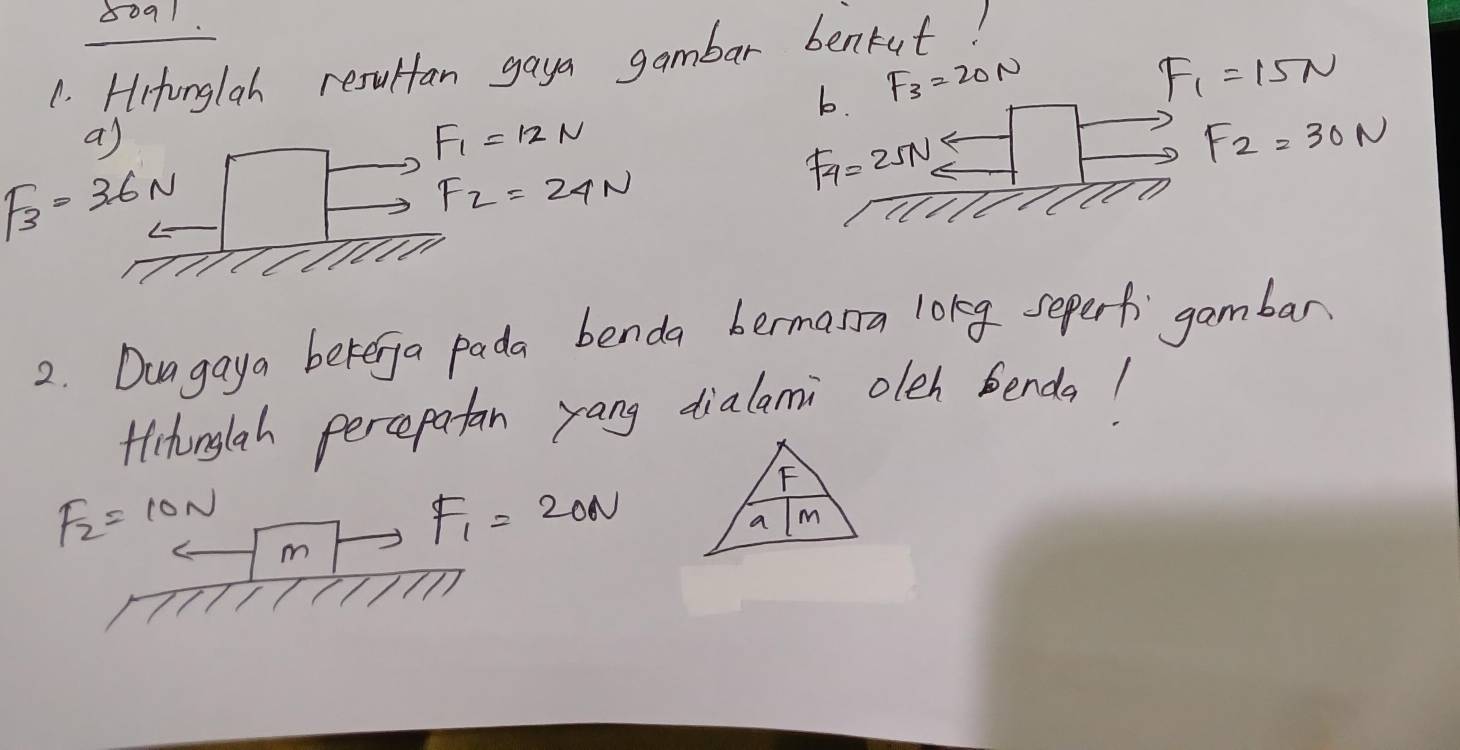 soal.
1. Hitunglah resultan gaya gambar berikut!
a)
F₁ = 12 N
F₂ = 24 N
F₃ = 36 N
b. F₃ = 20 N
F₁ = 15 N
F₄ = 25 N
F₂ = 30 N
2. Dua gaya bekerja pada benda bermassa 10kg seperti gambar
Hitunglah percepatan yang dialami oleh benda!
F₂ = 10 N
m
F₁ = 20 N
F
a m